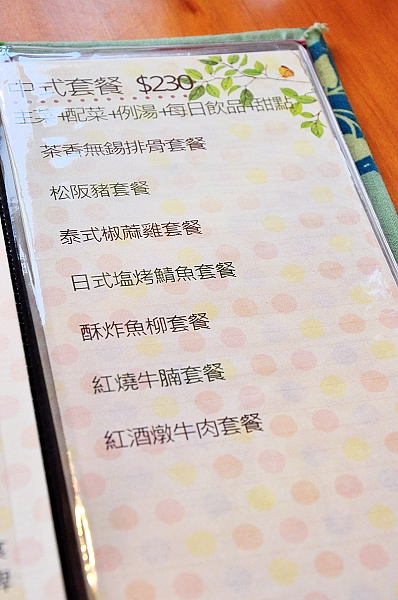 中式套餐 $230
主菜+配菜+例湯+每日飲品+甜點
茶香無錫排骨套餐
松阪豬套餐
泰式椒蔴雞套餐
日式塩烤鯖魚套餐
酥炸魚柳套餐
紅燒牛腩套餐
紅酒燉牛肉套餐